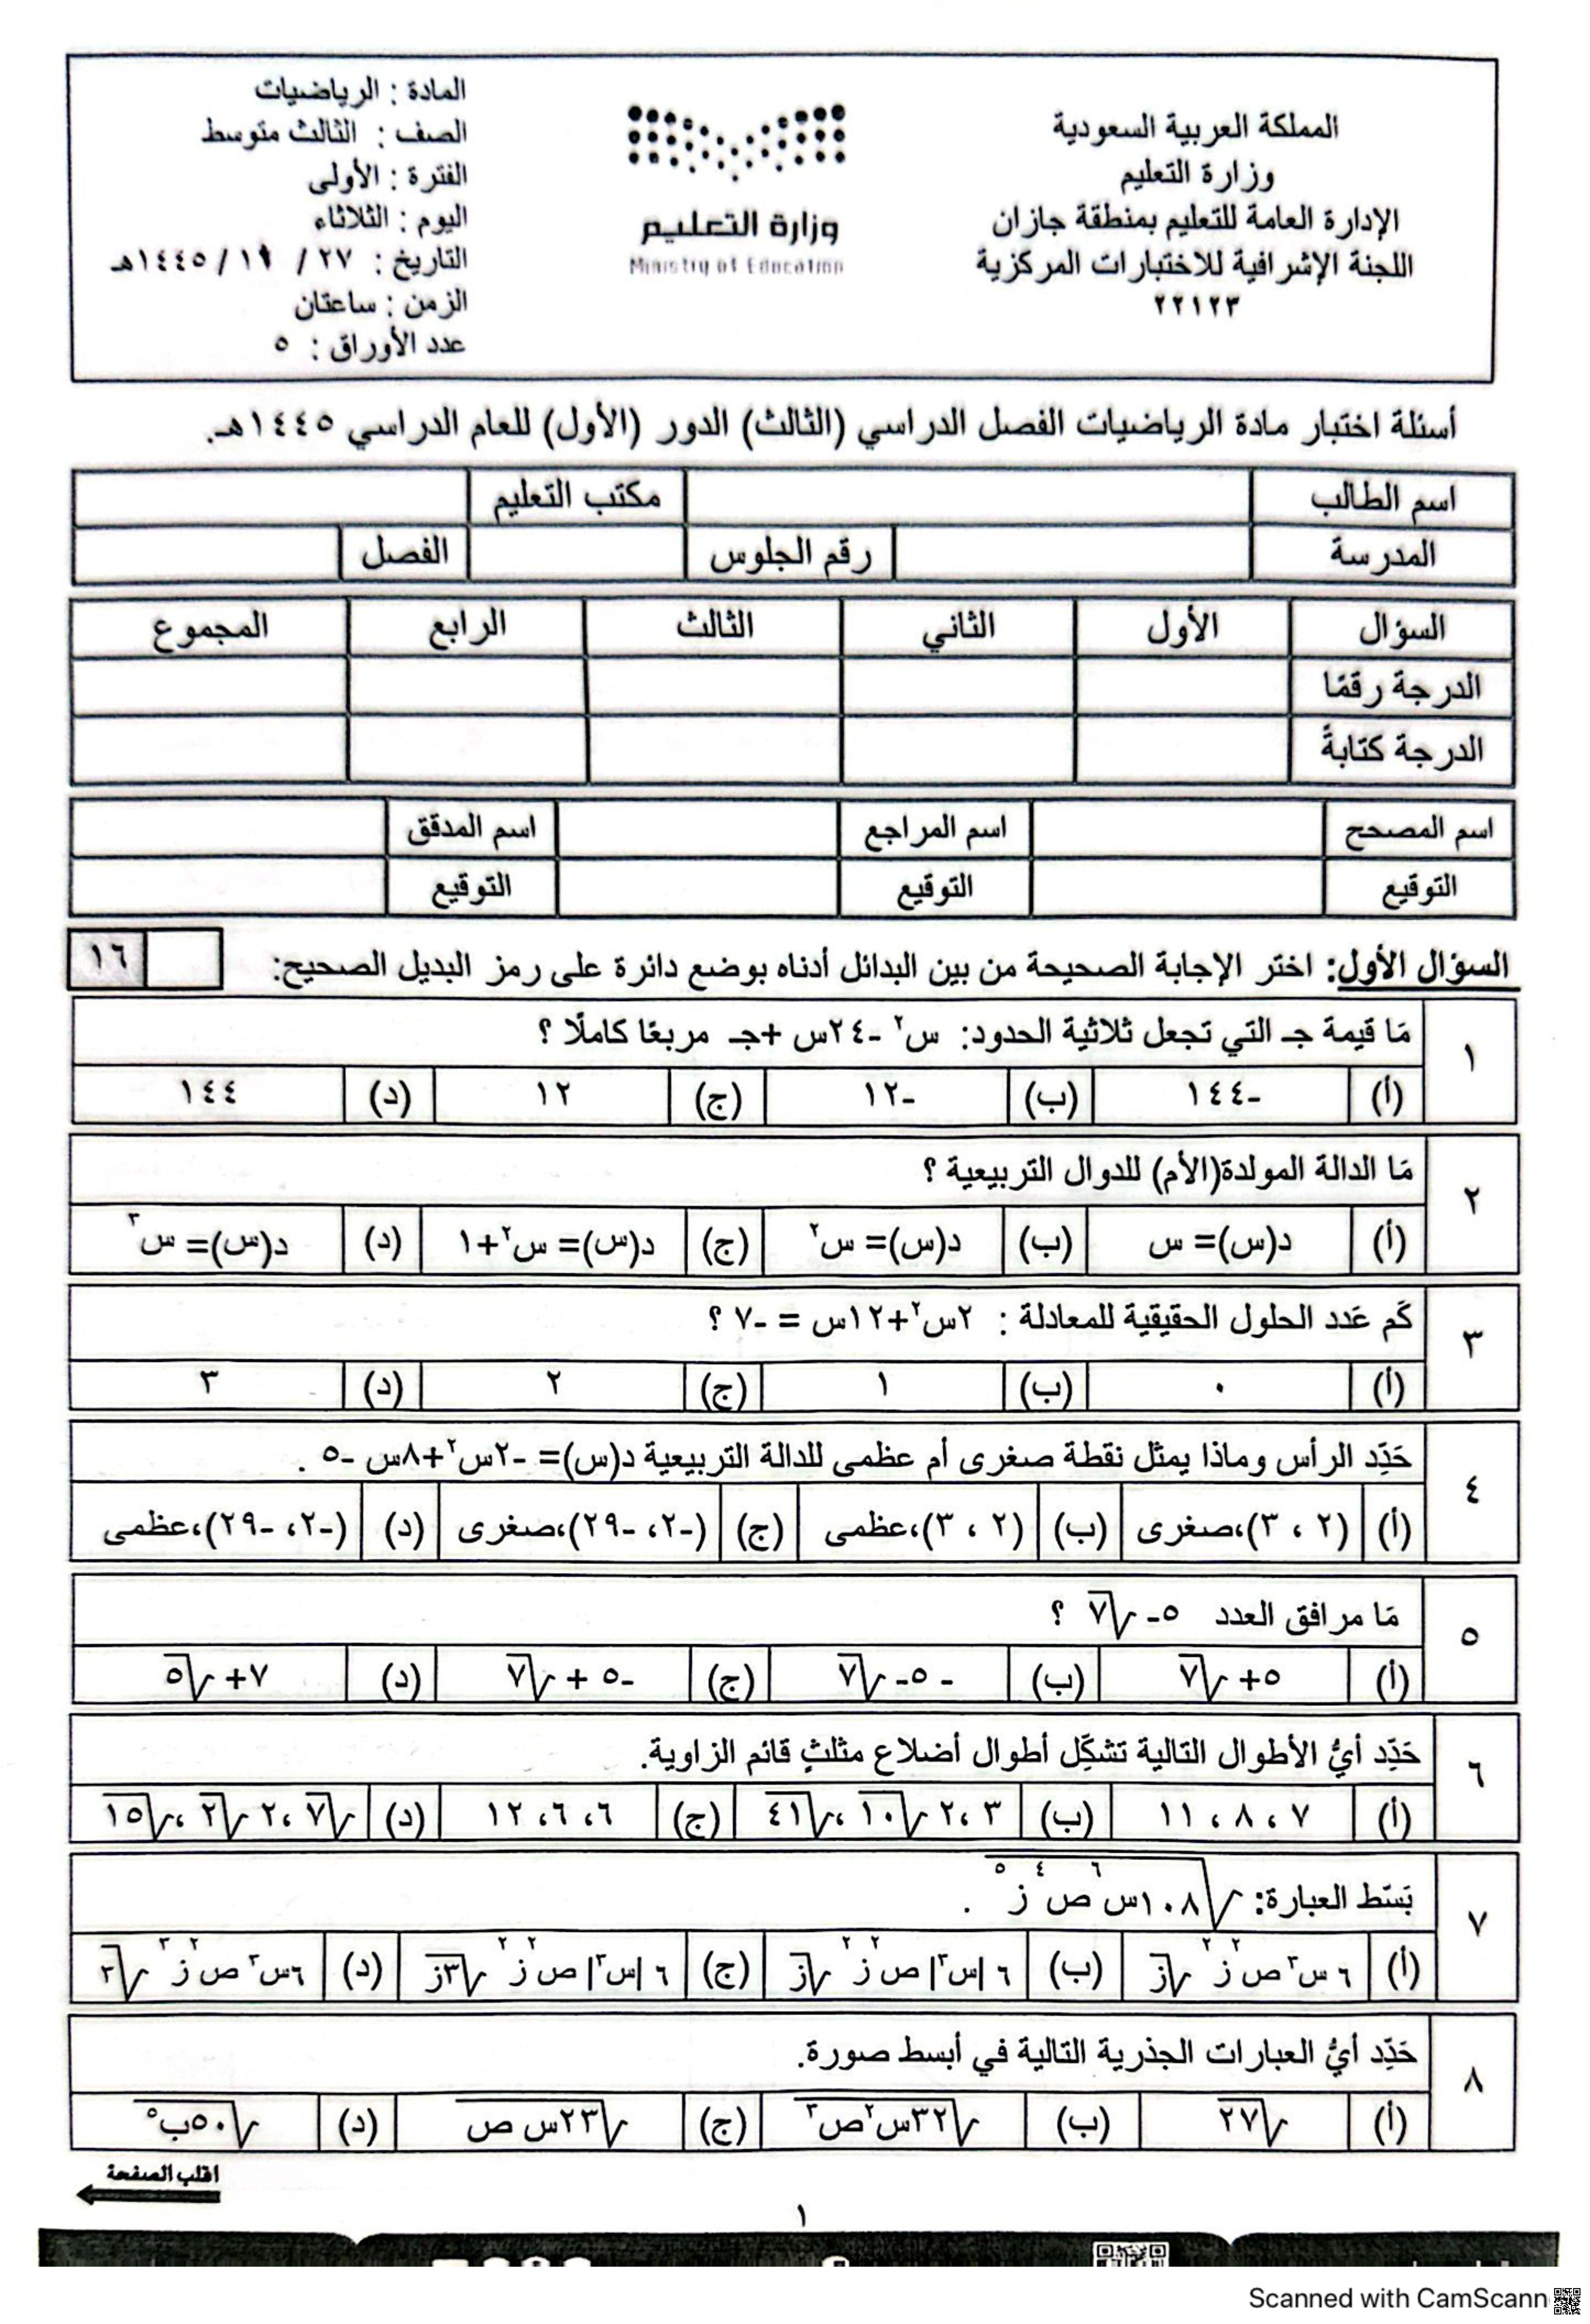 المملكة العربية السعودية
وزارة التعليم
الإدارة العامة للتعليم بمنطقة جازان
اللجنة الإشرافية للاختبارات المركزية
٢٢١٢٣
وزارة التعليم
Ministry of Education
المادة : الرياضيات
الصف : الثالث متوسط
الفترة : الأولى
اليوم : الثلاثاء
التاريخ : ٢٧ / ١١ / ١٤٤٥هـ
الزمن : ساعتان
عدد الأوراق : ٥
أسئلة اختبار مادة الرياضيات الفصل الدراسي (الثالث) الدور (الأول) للعام الدراسي ١٤٤٥هـ.
اسم الطالب مكتب التعليم
المدرسة رقم الجلوس الفصل
السؤال الأول الثاني الثالث الرابع المجموع
الدرجة رقمًا
الدرجة كتابةً
اسم المصحح اسم المراجع اسم المدقق
التوقيع التوقيع التوقيع
السؤال الأول: اختر الإجابة الصحيحة من بين البدائل أدناه بوضع دائرة على رمز البديل الصحيح: ١٦
١ مَا قيمة جـ التي تجعل ثلاثية الحدود: س٢ -٢٤س +جـ مربعًا كاملًا ؟
(أ) -١٤٤ (ب) -١٢ (ج) ١٢ (د) ١٤٤
٢ مَا الدالة المولدة(الأم) للدوال التربيعية ؟
(أ) د(س)= س (ب) د(س)= س٢ (ج) د(س)= س٢+١ (د) د(س)= س٣
٣ كَم عَدد الحلول الحقيقية للمعادلة : ٢س٢+١٢س = -٧ ؟
(أ) ٠ (ب) ١ (ج) ٢ (د) ٣
٤ حَدِّد الرأس وماذا يمثل نقطة صغرى أم عظمى للدالة التربيعية د(س)= -٢س٢+٨س -٥ .
(أ) (٢ ، ٣)،صغرى (ب) (٢ ، ٣)،عظمى (ج) (-٢، -٢٩)،صغرى (د) (-٢، -٢٩)،عظمى
٥ مَا مرافق العدد ٥- √٧ ؟
(أ) ٥+ √٧ (ب) - ٥- √٧ (ج) -٥ + √٧ (د) ٧+ √٥
٦ حَدِّد أيُّ الأطوال التالية تشكِّل أطوال أضلاع مثلثٍ قائم الزاوية.
(أ) ٧ ، ٨ ، ١١ (ب) ٣ ،٢ √١٠ ،√٤١ (ج) ٦، ٦، ١٢ (د) √٧ ،٢ √٢ ،√١٥
٧ بَسّط العبارة: √١٠٨س٦ ص٤ ز٥ .
(أ) ٦ س٣ ص٢ ز٢ √ز (ب) ٦ |س٣| ص٢ ز٢ √ز (ج) ٦ |س٣| ص٢ ز٢ √٣ز (د) ٦س٣ ص٢ ز٣ √٢
٨ حَدِّد أيُّ العبارات الجذرية التالية في أبسط صورة.
(أ) √٢٧ (ب) √٣٢س٢ص٣ (ج) √٢٣س ص (د) √٥٠ب٥
اقلب الصفحة
١
Scanned with CamScann